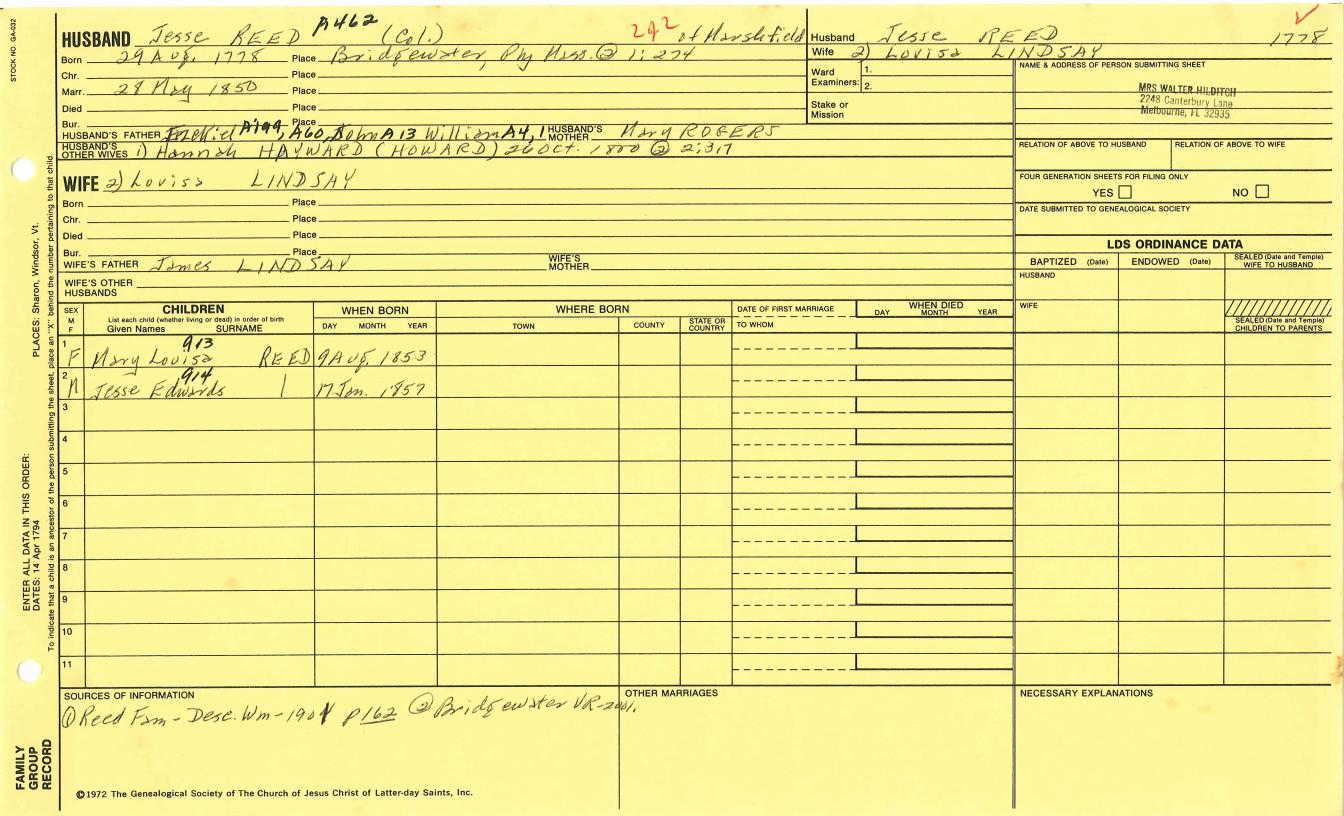 STOCK NO. GA-032
PLACES: Sharon, Windsor, Vt.
ENTER ALL DATA IN THIS ORDER:
DATES: 14 Apr 1794
To indicate that a child is an ancestor of the person submitting the sheet, place an "X" behind the number pertaining to that child.
FAMILY
GROUP
RECORD
HUSBAND Jesse REED A462 (Col.) 242 of Marshfield
Born 29 Aug. 1778 Place Bridgewater, Ply Mass. ② 1:274
Chr. Place
Marr. 28 May 1850 Place
Died Place
Bur. Place
HUSBAND'S FATHER Ezekiel A199, A60, John A13 William A4, 1 HUSBAND'S MOTHER Mary ROGERS
HUSBAND'S OTHER WIVES 1) Hannah HAYWARD (HOWARD) 26 Oct. 1800 ② 2:317
WIFE 2) Lovisa LINDSAY
Born Place
Chr. Place
Died Place
Bur. Place
WIFE'S FATHER James LINDSAY WIFE'S MOTHER
WIFE'S OTHER HUSBANDS
Husband Jesse REED 1778
Wife 2) Lovisa LINDSAY
Ward Examiners: 1.
2.
Stake or Mission
NAME & ADDRESS OF PERSON SUBMITTING SHEET
MRS WALTER HILDITCH
2248 Canterbury Lane
Melbourne, FL 32935
RELATION OF ABOVE TO HUSBAND RELATION OF ABOVE TO WIFE
FOUR GENERATION SHEETS FOR FILING ONLY
YES NO
DATE SUBMITTED TO GENEALOGICAL SOCIETY
LDS ORDINANCE DATA
BAPTIZED (Date) ENDOWED (Date) SEALED (Date and Temple) WIFE TO HUSBAND
HUSBAND
WIFE
SEALED (Date and Temple) CHILDREN TO PARENTS
SEX M F CHILDREN WHEN BORN WHERE BORN DATE OF FIRST MARRIAGE WHEN DIED
List each child (whether living or dead) in order of birth
Given Names SURNAME DAY MONTH YEAR TOWN COUNTY STATE OR COUNTRY TO WHOM DAY MONTH YEAR
1 F Mary Louisa 913 REED 9 Aug. 1853
2 M Jesse Edwards 914 | 17 Jan. 1857
3
4
5
6
7
8
9
10
11
SOURCES OF INFORMATION
① Reed Fam - Desc. Wm - 1901 p162 ② Bridgewater VR-2001.
OTHER MARRIAGES
NECESSARY EXPLANATIONS
©1972 The Genealogical Society of The Church of Jesus Christ of Latter-day Saints, Inc.